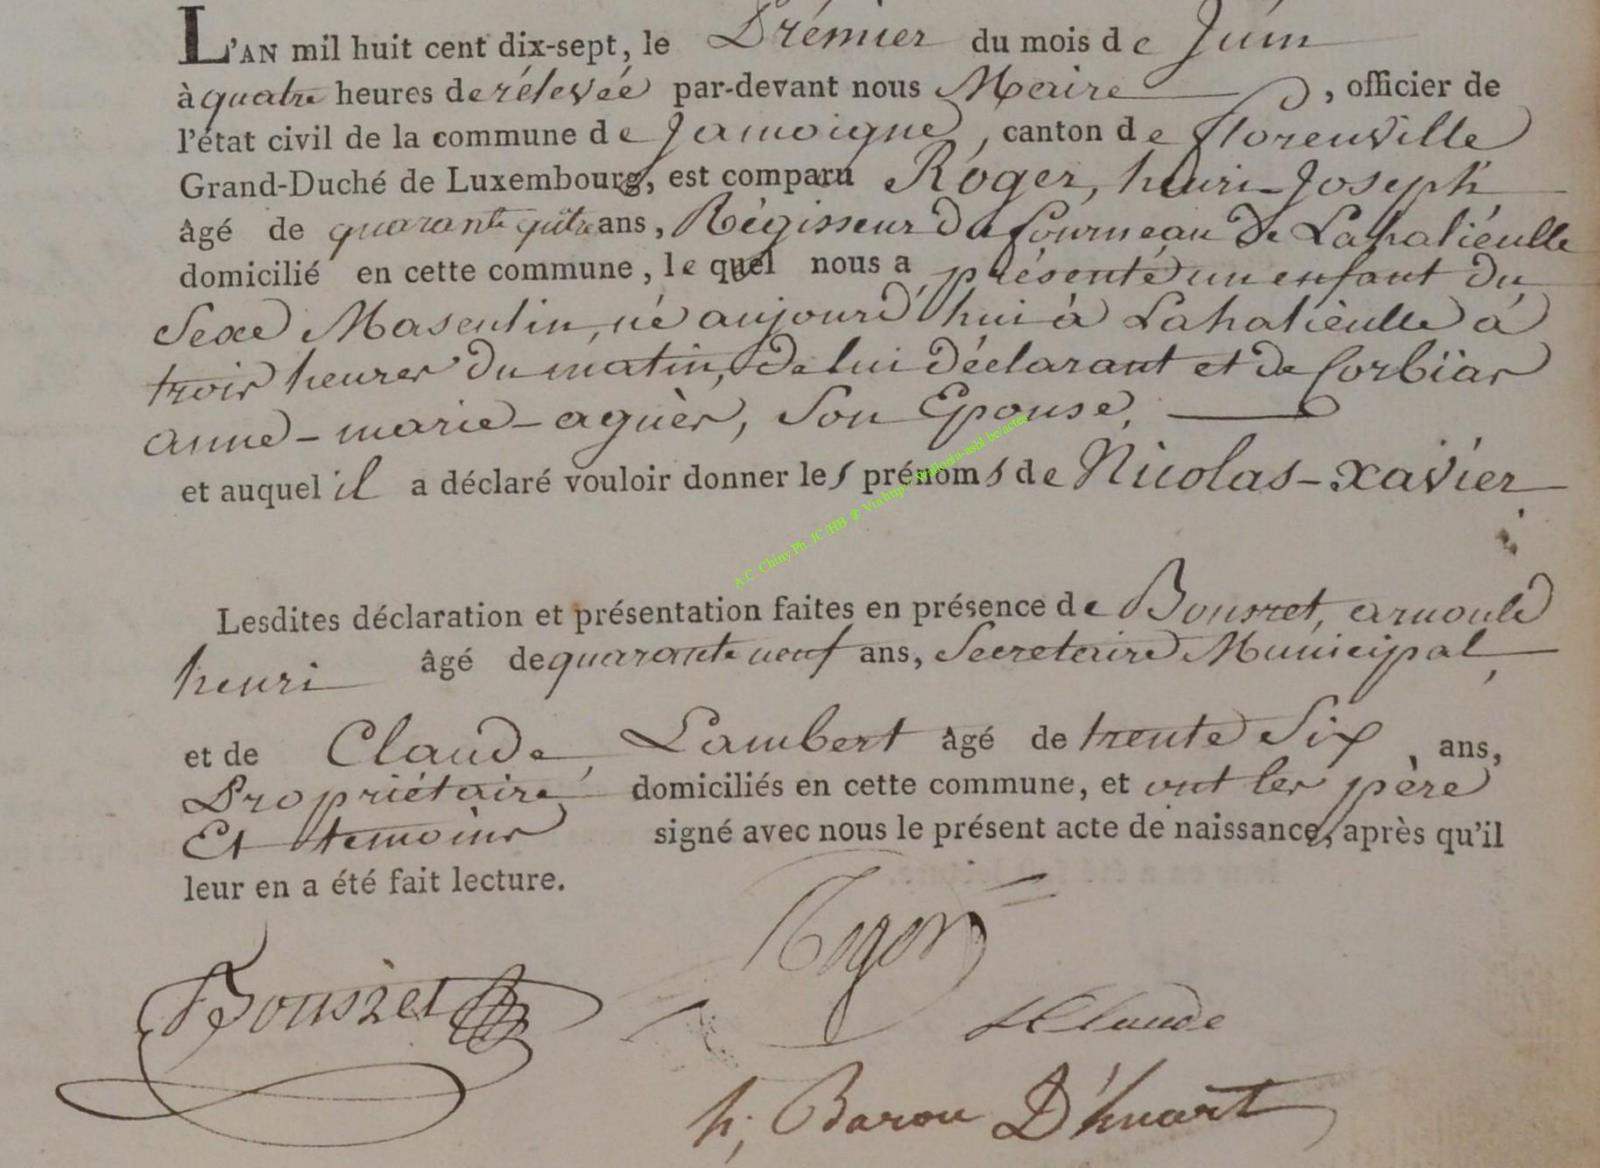 L'AN mil huit cent dix-sept, le Prémier du mois de Juin
à quatre heures de rélevée par-devant nous Maire, officier de
l'état civil de la commune de Jamoigne, canton de Florenville
Grand-Duché de Luxembourg, est comparu Roger, henri-Joseph
âgé de quarante ans, Régisseur du fourneau de Lahatieulle
domicilié en cette commune, le quel nous a présenté un enfant du
Sexe Masculin, né aujourd'hui à Lahatieulle à
trois heures du matin, de lui déclarant et de Corbïar
anne-marie-agnès, Son Epouse,
et auquel il a déclaré vouloir donner les prénoms de Nicolas-xavier
Lesdites déclaration et présentation faites en présence de Bousret, arnould
henri âgé de quarante neuf ans, Secretaire Municipal,
et de Claude, Lambert âgé de trente Six ans,
Propriétaire domiciliés en cette commune, et ont les père
Et temoins signé avec nous le présent acte de naissance, après qu'il
leur en a été fait lecture.
Roger
Bousret
L Claude
h, Baron D'huart